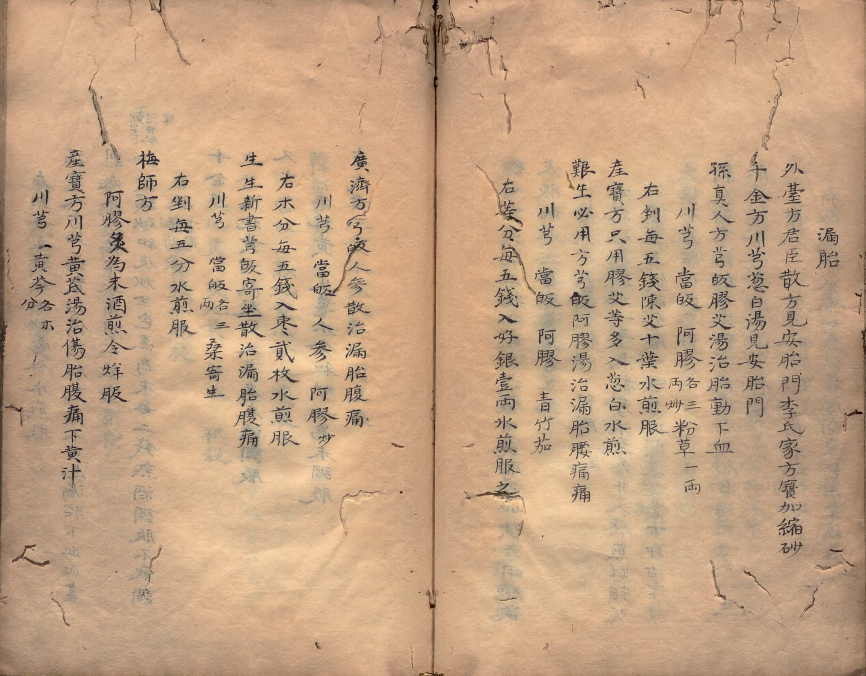 漏胎
外臺方君臣散方見安胎門李氏家方實加縮砂
千金方川芎葱白湯見安胎門
孫真人方芎皈膠艾湯治胎動下血
川芎 當皈 阿膠各三两炒粉草一兩
右剉每五錢陳艾十葉水煎服
産寶方只用膠艾等多入葱白水煎
艱生必用方芎皈阿膠湯治漏胎腰痛痛
川芎 當皈 阿膠 青竹茹
右等分每五錢入好銀壹兩水煎服之
廣濟方芎皈人參散治漏胎腹痛
川芎當皈人參 阿膠炒
右木分每五錢入枣貳枚水煎服
生生新書芎皈寄生散治漏胎腹痛
川芎 當皈各三两 桑寄生
右剉每五分水煎服
梅師方
阿膠炙為末酒煎令烊服
産寶方川芎黄芪湯治傷胎腹痛下黄汁
川芎一黄芩各木分